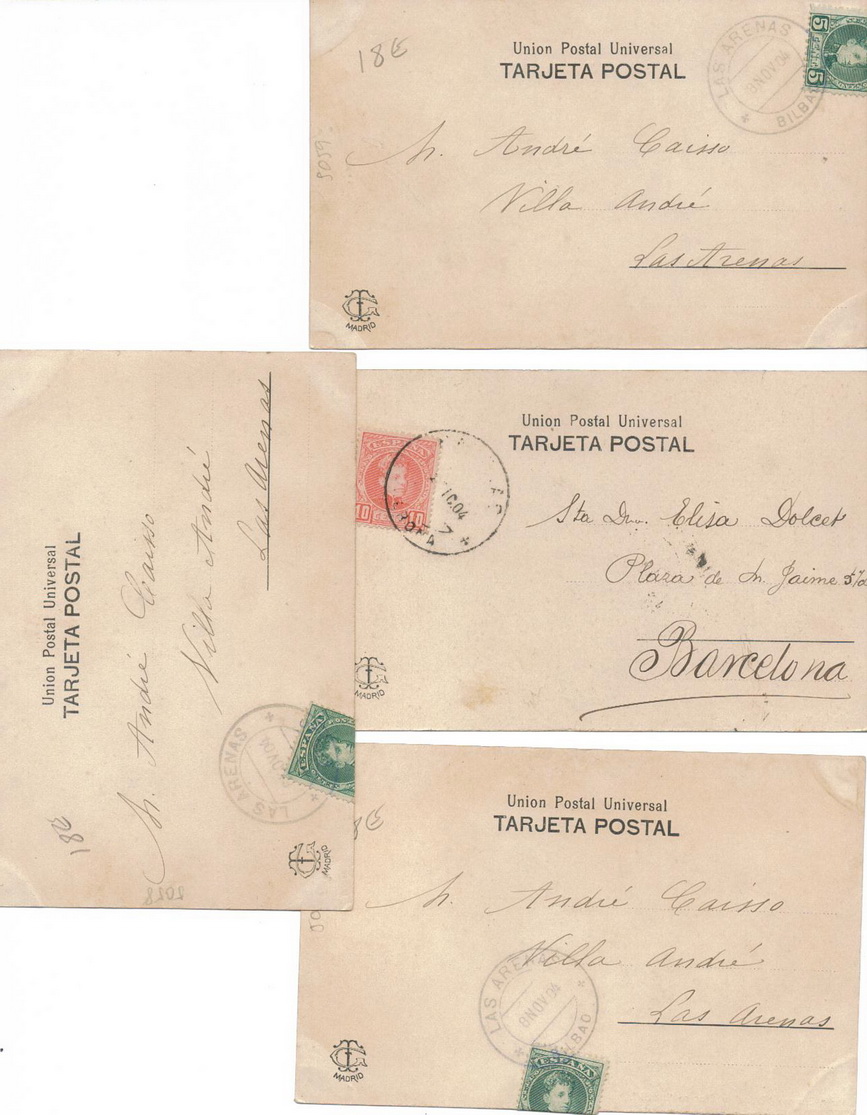 18€
Union Postal Universal
TARJETA POSTAL
LAS ARENAS
8 NOV 04
BILBAO
5 5
5059
M. André Caisso
Villa André
Las Arenas
MADRID
Union Postal Universal
TARJETA POSTAL
M. André Caisso
Villa André
Las Arenas
LAS ARENAS
NOV 04
ESPAÑA
18€
2028
MADRID
Union Postal Universal
TARJETA POSTAL
ESPAÑA
10 10
IC.04
Sta Elisa Dolcet
Plaza de Jaime
Barcelona
MADRID
Union Postal Universal
TARJETA POSTAL
M. André Caisso
Villa André
Las Arenas
LAS ARENAS
8 NOV 04
BILBAO
ESPAÑA
MADRID